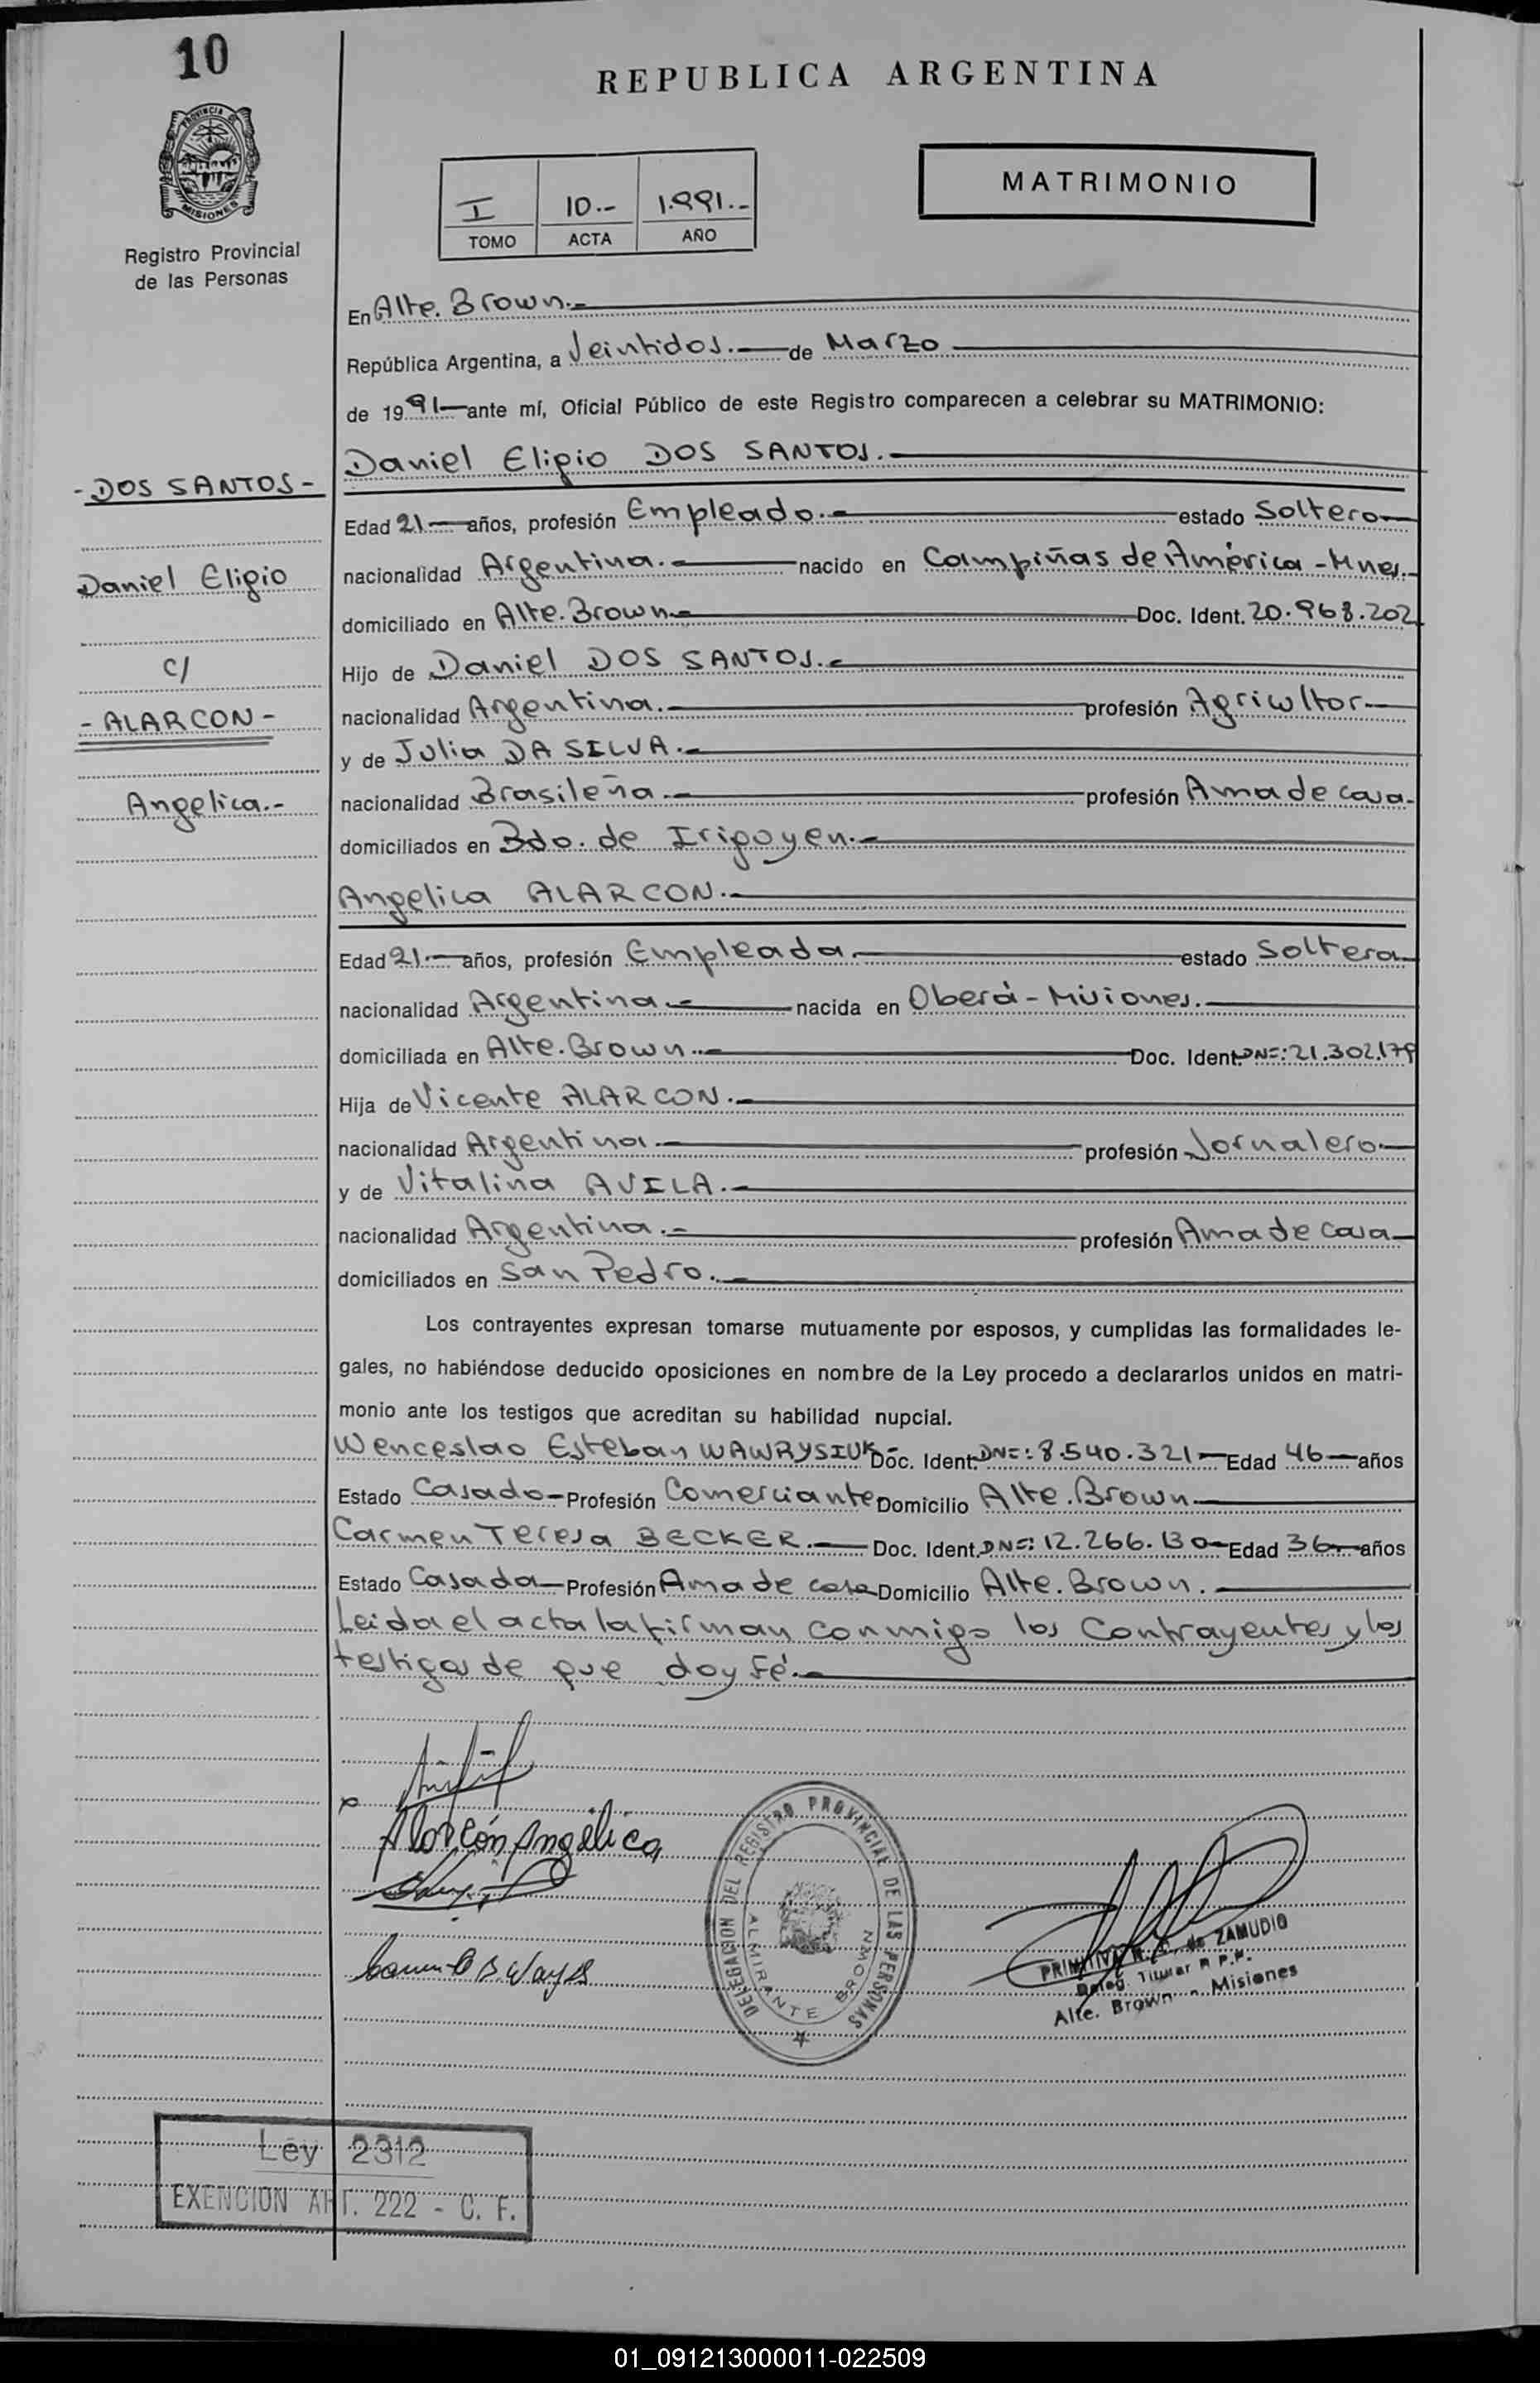 10
REPUBLICA ARGENTINA
PROVINCIA DE
MISIONES
Registro Provincial
de las Personas
I 10.- 1.991.-
TOMO ACTA AÑO
MATRIMONIO
En Alte. Brown.-
República Argentina, a Veintidos.- de Marzo
de 1991 ante mí, Oficial Público de este Registro comparecen a celebrar su MATRIMONIO:
Daniel Eligio DOS SANTOS.-
- DOS SANTOS -
Edad 21 años, profesión Empleado.- estado Soltero
Daniel Eligio
nacionalidad Argentina.- nacido en Campiñas de América - Mnes.
domiciliado en Alte. Brown.- Doc. Ident. 20.968.202
c/
Hijo de Daniel DOS SANTOS.-
- ALARCON -
nacionalidad Argentina.- profesión Agricultor
y de Julia DA SILVA.-
Angelica.-
nacionalidad Brasileña.- profesión Ama de casa.
domiciliados en Bdo. de Irigoyen.-
Angelica ALARCON.-
Edad 21.- años, profesión Empleada.- estado Soltera
nacionalidad Argentina.- nacida en Oberá - Misiones.-
domiciliada en Alte. Brown.- Doc. Ident. DNI: 21.302.179
Hija de Vicente ALARCON.-
nacionalidad Argentina.- profesión Jornalero
y de Vitalina AVILA.-
nacionalidad Argentina.- profesión Ama de casa
domiciliados en San Pedro.-
Los contrayentes expresan tomarse mutuamente por esposos, y cumplidas las formalidades le-
gales, no habiéndose deducido oposiciones en nombre de la Ley procedo a declararlos unidos en matri-
monio ante los testigos que acreditan su habilidad nupcial.
Wenceslao Esteban WAWRYSIUK.- Doc. Ident. DNI: 8.540.321 Edad 46 años
Estado Casado Profesión Comerciante Domicilio Alte. Brown
Carmen Teresa BECKER.- Doc. Ident. DNI: 12.266.130 Edad 36 años
Estado Casada Profesión Ama de casa Domicilio Alte. Brown.
Leida el acta la firman conmigo los Contrayentes y los
testigos de que doy Fé.-
Alarcón Angélica
DELEGACION DEL REGISTRO PROVINCIAL DE LAS PERSONAS
ALMIRANTE BROWN
de ZAMUDIO
Deleg. Titular R.P.P.
Alte. Brown - Misiones
Ley 2312
EXENCION ART. 222 - C. F.
01_091213000011-022509